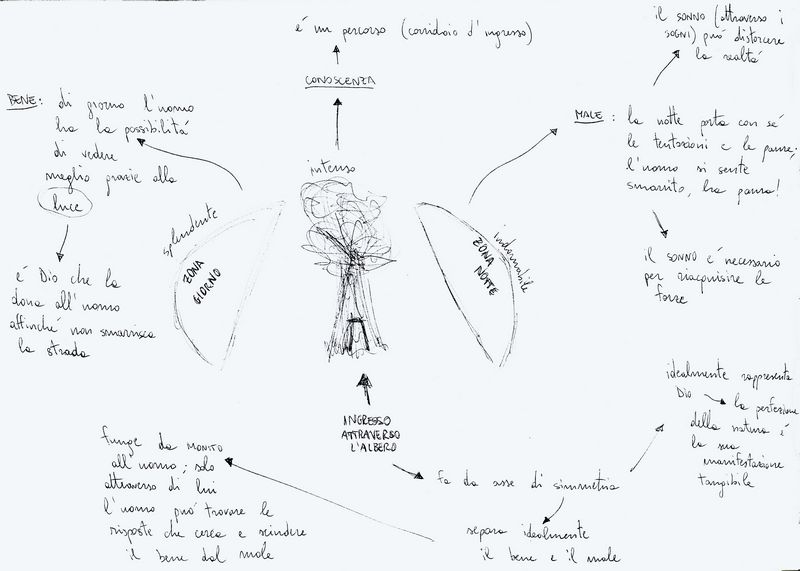 é un percorso (corridoio d'ingresso)
CONOSCENZA
intenso
BENE: di giorno l'uomo
ha la possibilitá
di vedere
meglio grazie alla
luce
é Dio che la
dona all'uomo
affinché non smarrisca
la strada
splendente
ZONA
GIORNO
il SONNO (attraverso i
SOGNI) puó distorcere
la realtá
MALE: la notte porta con sé
le tentazioni e le paure;
l'uomo si sente
smarrito, ha paura!
il SONNO é necessario
per riacquisire le
forze
indomabile
ZONA
NOTTE
INGRESSO
ATTRAVERSO
L'ALBERO
fa da asse di simmetria
idealmente rappresenta
Dio → la perfezione
della natura é
la sua
manifestazione
tangibile
separa idealmente
il bene e il male
funge da MONITO
all'uomo; solo
attraverso di lui
l'uomo puó trovare le
risposte che cerca e scindere
il bene dal male